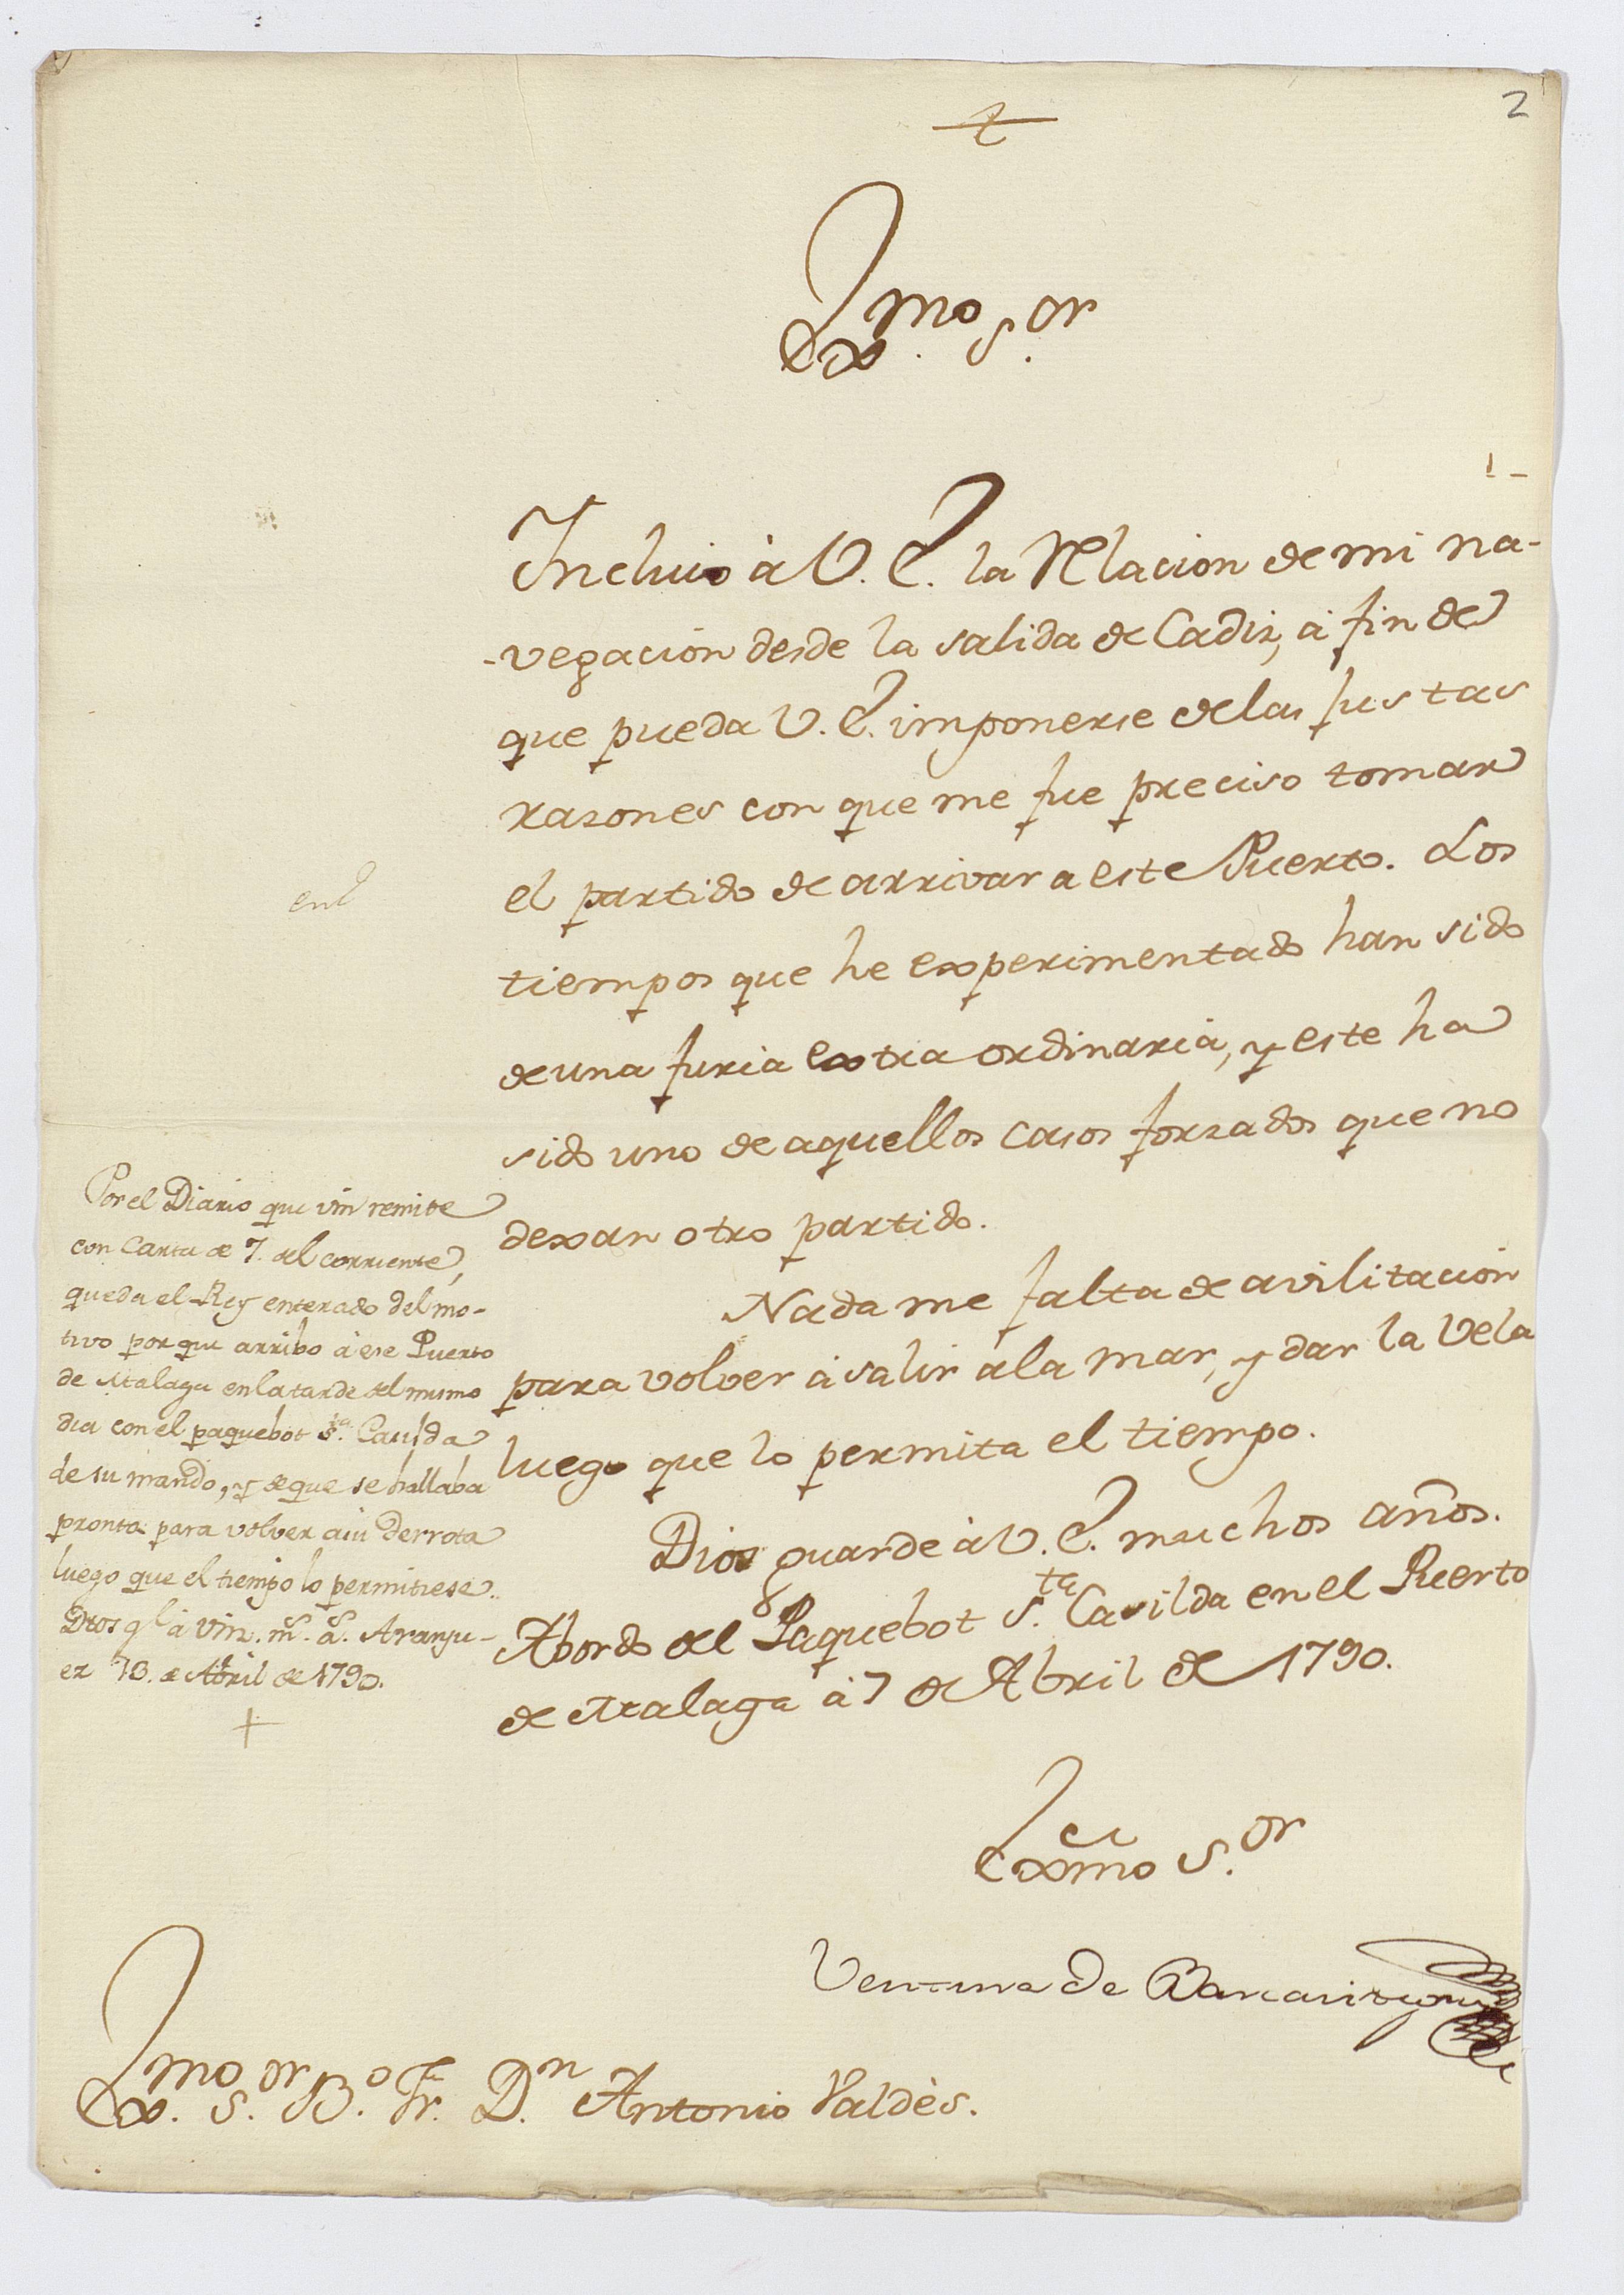 2
Ex.mo S.or
Incluio à V. E. la Relacion de mi na-
-vegacion desde la salida de Cadiz, à fin de
que pueda V. E. imponerse delas justas
razones con que me fue preciso tomar
el partido de arrivar a este Puerto. Los
tiempos que he experimentado han sido
de una furia extra ordinaria, y este ha
sido uno de aquellos casos forzados que no
dexan otro partido.
Nada me falta de avilitacion
para volver à salir àla mar, y dar la Vela
luego que lo permita el tiempo.
Dios guarde à V. E. muchos años.
Abordo del Paquebot S.ta Casilda en el Puerto
de Malaga à 7 de Abril de 1790.
Exmo S.or
Ventura de
Ex.mo S.or B.o Fr. D.n Antonio Valdès.
Por el Diario que vm remite
con Carta de 7. del corriente,
queda el Rey enterado del mo-
tivo por que arribo à ese Puerto
de Malaga enlatarde del mismo
dia con el paquebot S.ta Casilda
de su mando, y de que se hallaba
pronta para volver a su derrota
luego que el tiempo lo permitiese.
Dios g.e à vm. m.s a.s Aranju-
ez de Abril de 1790.